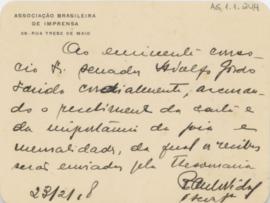 ASSOCIAÇÃO BRASILEIRA
DE IMPRENSA
RUA TREZE DE MAIO
AG.1.1.244
Ao eminente conso-
cio Sr. senador Adolfo Gordo
saúdo cordialmente, accusan-
do o recebimento da carta e
da importancia da joia e
mensalidade, da qual o recibo
será enviado pela Thesouraria
23/2/18